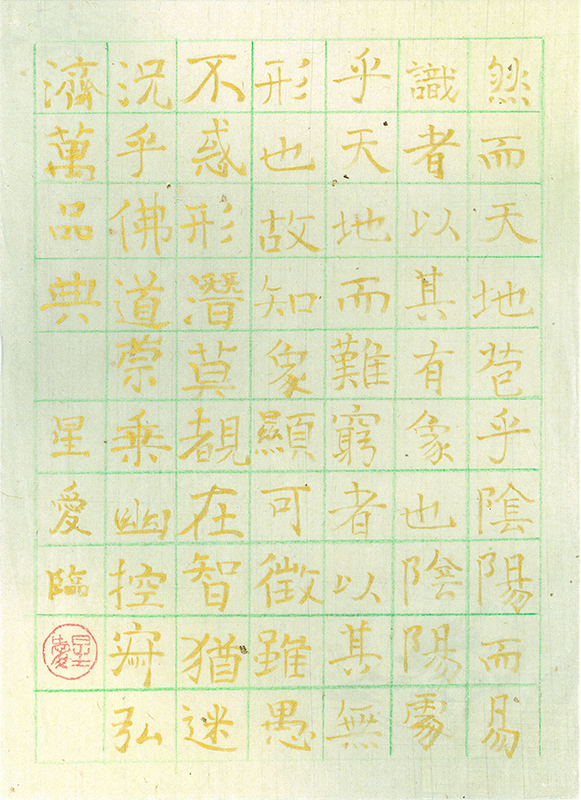 然而天地苞乎陰陽而易
識者以其有象也陰陽處
乎天地而難窮者以其無
形也故知象顯可徵雖愚
不惑形潛莫覩在智猶迷
況乎佛道崇乘幽控寂弘
濟萬品典 星愛臨
星愛